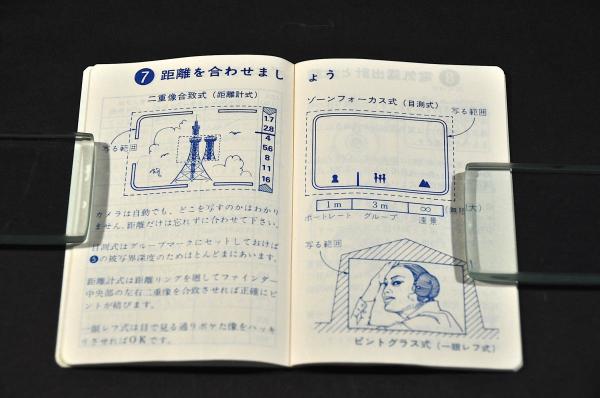 ⑦ 距離を合わせましょう
二重像合致式（距離計式）
写る範囲
1.7
2.8
4
5.6
8
11
16
カメラは自動でも、どこを写すのかはわかり
ません。距離だけは忘れずに合わせて下さい。
目測式はグループマークにセットしておけば
⑤の被写界深度のためほとんどまにあいます。
距離計式は距離リングを廻してファインダー
中央部の左右二重像を合致させれば正確にピ
ントが結びます。
一眼レフ式は目で見る通りボケた像をハッキ
リさせればOKです。
ゾーンフォーカス式（目測式）
写る範囲
1m 3m ∞ (無限大)
ポートレート グループ 遠景
写る範囲
ピントグラス式（一眼レフ式）